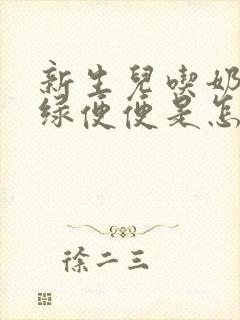 新生兒喫奶
綠便便是怎
徐二三